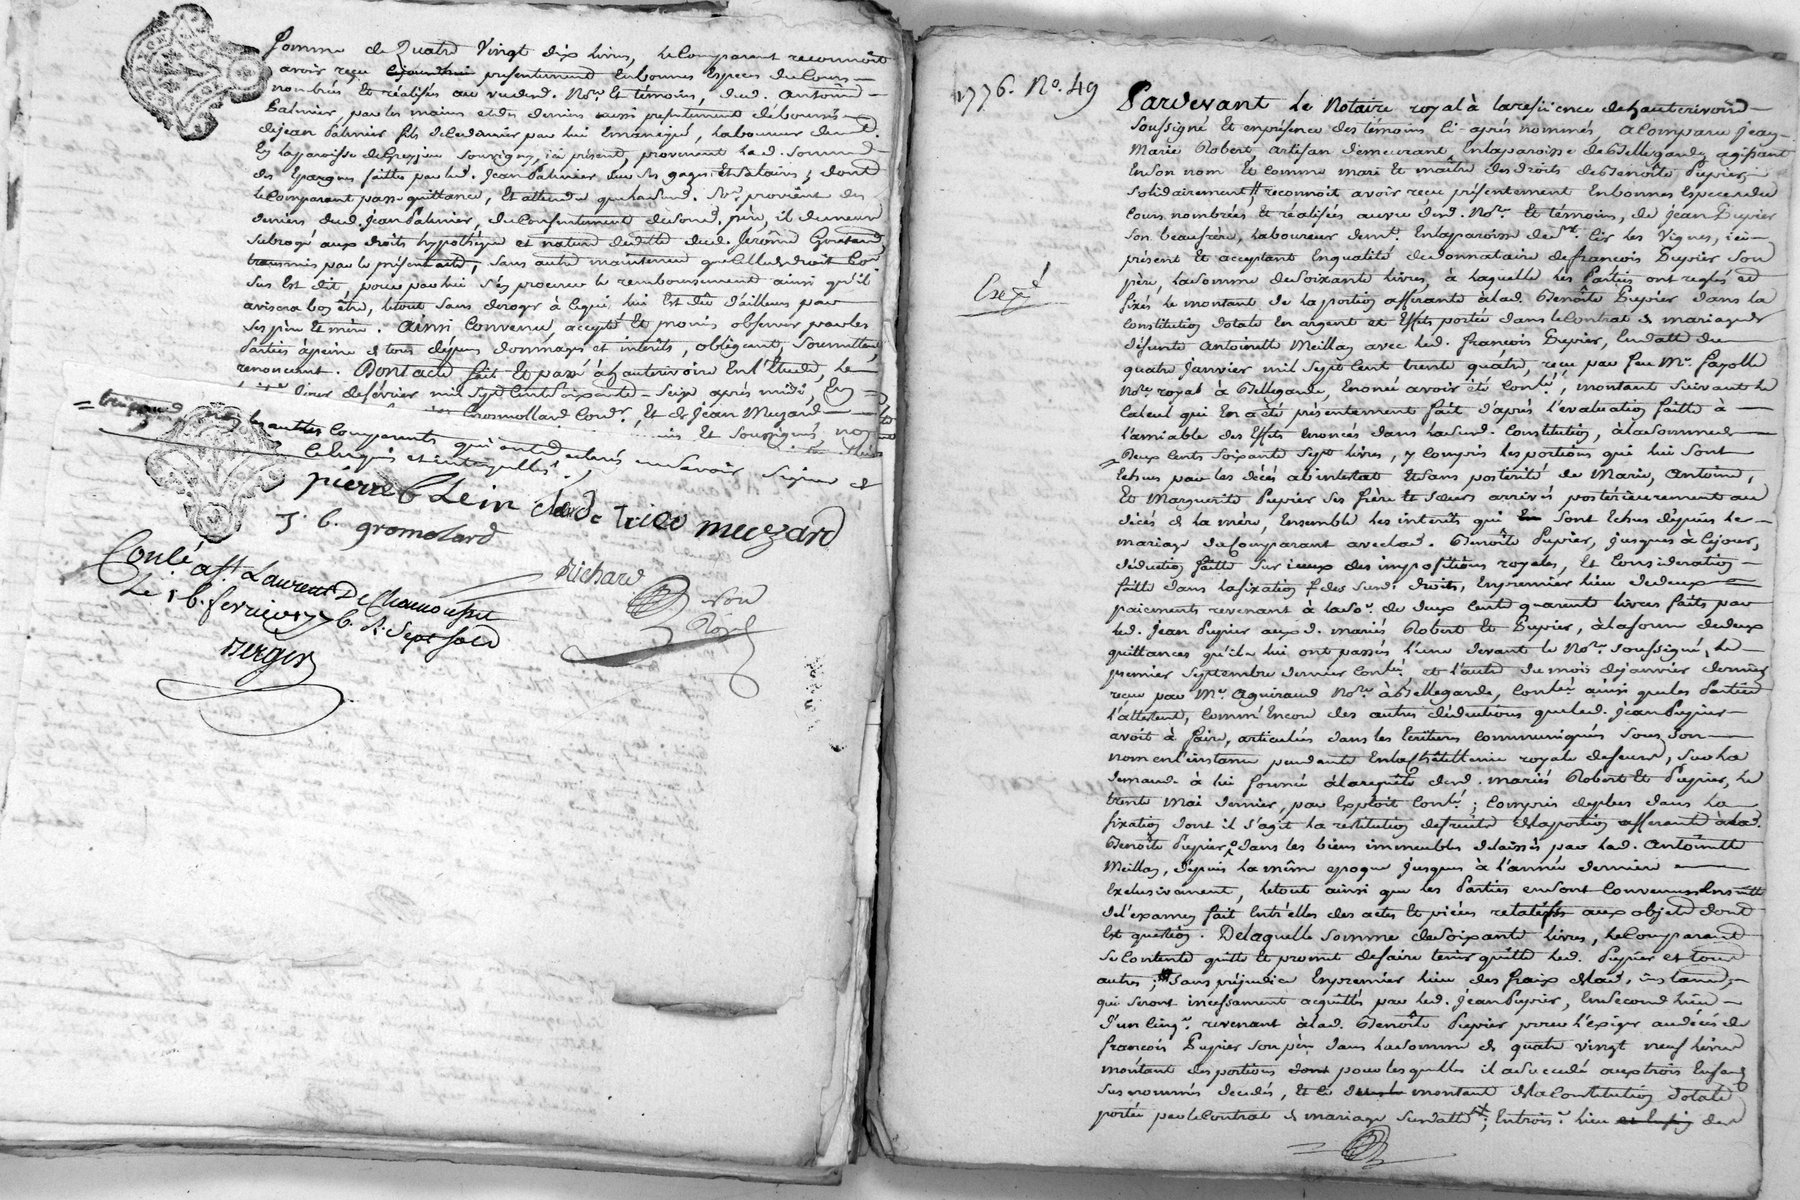 Somme de Quatre Vingt dix livres, le Comparant reconnoit
avoir reçu presentement en bonnes Especes du Cours
nombrés Et réalisés au vu desd. No.re Et témoins, dud. Antoine
Palmier par les mains et des deniers aussi presentement déboursés
de jean Palmier fils de lad. par lui Emancipé, Laboureur demt.
En la paroisse de Grezieu Souvigny, ici présent, provenant lad. Somme
des Epargnes faites par led. Jean Palmier sur ses gages et salaires; dont
le Comparant passe quittance, Et attendu que lad. So.e provient des
deniers dud. Jean Palmier, du Consentement dud. père, il demeure
Subrogé aux droits hypothèque et nature de dud. Jerôme
transmis par le présent acte, sans autre maintenue que Celle de droit
sus Est dit, pour par lui s'en procurer le remboursement ainsi qu'il
avisera bon être, le tout sans deroger à Ce qui lui Est dû d'ailleurs par
ses père Et mère. Ainsi Convenu, accepté Et promis observer par les
Parties à peine de tous dépens dommages et interets, obligeant, Soumettant,
renonçant. Dont acte fait Et passé à hauterivoire En l'Etude, le
jour de février mil Sept Cent Soixante-Seize après midi, En
Gromollard Cord.r, Et de Jean Muzard
et Soussignés, non
les autres Comparants qui ont declarés ne savoir signer de
Ce enquis et interpellés.
pierre blein claude muzard
J. b. gromolard
Richard
Conlé à St. Laurent De Chamousset
Le 16. fevrier 1776. R. Sept sols
Berger
No.re
Royal
1776. No. 49
Expé.
Pardevant le Notaire royal à la residence de hauterivoire
Soussigné Et en présence des témoins Ci-après nommés, a Comparu Jean
Marie Robert artisan demeurant En la paroisse de Bellegarde, agissant
En son nom Et comme mari et maître des droits de Benoite Pupier,
solidairement, reconnoit avoir reçu présentement En bonnes Especes du
Cours nombrées Et réalisés au vu desd. No.re Et témoins, de Jean Pupier
Son beaufrère, laboureur demt. En la paroisse de St. Cir les Vignes, ici
présent Et acceptant En qualité de donnataire de françois Pupier Son
père, la Somme de Soixante livres, à laquelle les Parties ont reglés et
fixés le montant de la portion afférante à lad. Benoîte Pupier dans la
Constitution dotale En argent et Effets portée dans le Contrat de mariage de
défunte Antoinette Meillan avec led. françois Pupier, En datte du
quatre Janvier mil Sept Cent trente quatre, reçu par feu Me. Fayolle
No.re royal à Bellegarde, Enoncé avoir été Conlé, montant suivant le
Calcul qui En a été présentement fait d'après l'évaluation faitte à
l'amiable des Effets Enoncés dans lad. Constitution, à la somme de
Deux Cents Soixante Sept livres, y Compris les portions qui lui sont
Echues par les décès ab intestat Et sans postérité de Marie, Antoine,
Et Marguerite Pupier Ses frère et Soeurs arrivés postérieurement au
décès de la mère, Ensemble les interets qui Sont Echus depuis le
mariage du Comparant avec lad. Benoîte Pupier, jusques à Ce jour,
déduction faitte sur iceux des impositions royales, Et Consideration
faitte dans la fixation des susd. droits, En premier lieu de deux
paiements revenant à la So.e de deux Cents quarente livres faits par
led. Jean Pupier auxd. mariés Robert Et Pupier, à la forme de deux
quittances qu'ils lui ont passés l'une devant le No.re Soussigné, le
premier Septembre dernier Conlé, et l'autre du mois de janvier dernier
reçue par Me. Aguiraud No.re à Bellegarde, Conlé ainsi que les Parties
l'attestent, Comm' Encore des autres déductions que led. Jean Pupier
avoit à faire, articulées dans les Ecritures Communiquées Sous Son
nom en l'instance pendante En la Châtellenie royale de feurs, Sur la
demande à lui formée à la requête desd. mariés Robert Et Pupier, le
trente Mai dernier, par Exploit Conlé; Compris de plus dans la
fixation dont il s'agit la restitution de fruits de la portion afferante à lad.
Benoîte Pupier dans les biens immeubles délaissés par lad. Antoinette
Meillan, depuis la même epoque jusques à l'année dernière
Exclusivement, le tout ainsi que les Parties en sont Convenues En suitte
de l'examen fait Entr'elles des actes Et pièces relatifs aux objets dont
Est question. De laquelle somme de Soixante livres, le Comparant
Se Contente quitte Et promet de faire tenir quitte led. Pupier et tous
autres; sans préjudice En premier lieu des fraix de lad. instance,
qui seront incessament acquittés par led. Jean Pupier, En Second lieu
d'un Cinq.e revenant à lad. Benoîte Pupier pour l'exiger au décès de
françois Pupier son père dans la Somme de quatre vingt neuf livres
montant des portions pour lesquelles il a succedé aux trois Enfans
sus nommés decedés, Et ce montant de la Constitution dotale
portée par le Contrat de mariage Susdatté; En trois.e lieu des